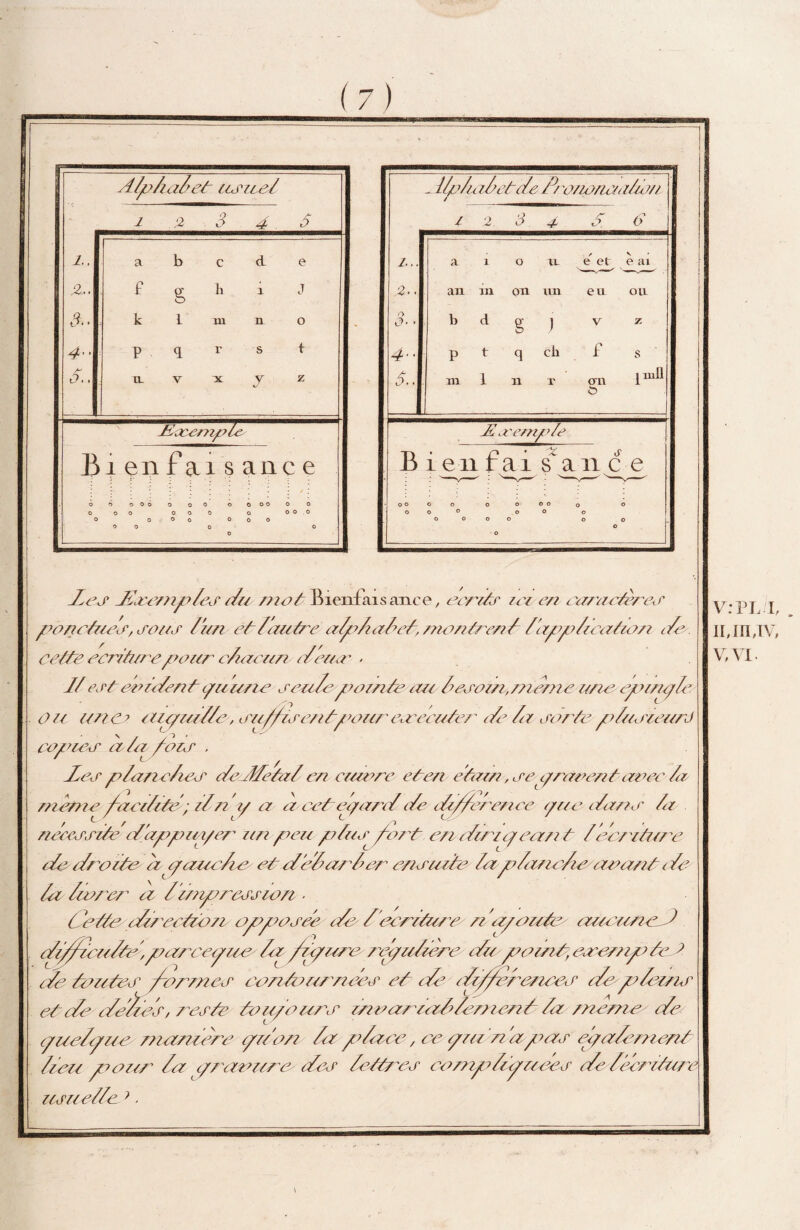 (7)
Alphabet usuel
1 2 3 4 5
1.. a b c d e
2.. f g h i J
3.. k l m n o
4.. p q r s t
5.. u v x y z
Exemple
Bienfaisance
Alphabet de Prononciation
1 2 3 4 5 6
1... a i o u é et è ai
2.. an in on un eu ou
3.. b d g j v z
4.. p t q ch f s
5.. m l n r gn l mll
Exemple
Bienfaisance
Les Exemples du mot Bienfaisance, écrits ici en caractères
ponctués, sous l'un et l'autre alphabet, montrent l'application de
cette écriture pour chacun d'eux.
Il est évident qu'une seule pointe au besoin, même une épingle
ou une aiguille, suffisent pour exécuter de la sorte plusieurs
copies à la fois.
Les planches de Métal en cuivre et en étain, se gravent avec la
même facilité; il n'y a à cet égard de différence que dans la
nécessité d'appuyer un peu plus fort en dirigeant l'écriture
de droite à gauche et d'ébarber ensuite la planche avant de
la livrer à l'impression.
Cette direction opposée de l'écriture n'ajoute aucune
difficulté, parceque la figure régulière du point, exempte
de toutes formes contournées et de différences de pleins
et de déliés, reste toujours invariablement la même de
quelque manière qu'on la place, ce qui n'a pas également
lieu pour la gravure des lettres compliquées de l'écriture
usuelle.
V: PL. I,
II, III, IV,
V, VI.